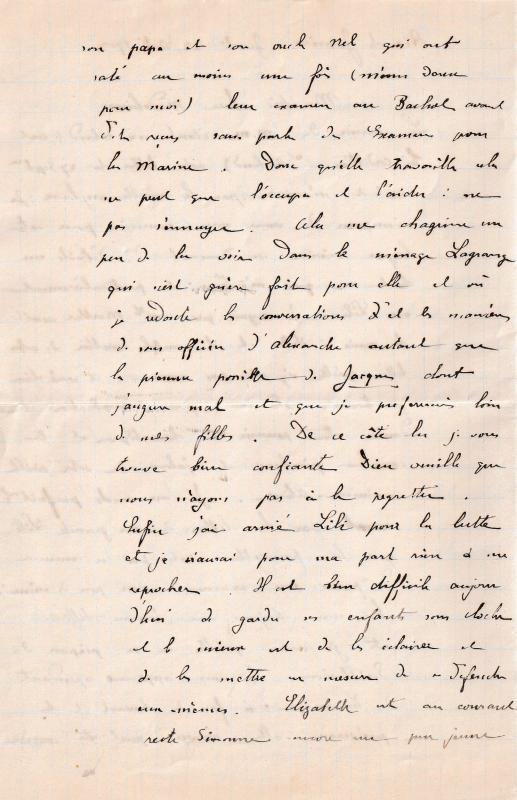 son papa et son oncle Nel qui ont
raté au moins une fois (mêmes deux
pour moi) leur examen au Bachot avant
d'être reçus sans parler des Examens pour
la Marine. Donc qu'elle travaille cela
ne peut que l'occuper et l'aider à ne
pas s'ennuyer. Cela me chagrine un
peu de la voir dans le ménage Lagrange
qui n'est guère fait pour elle et où
je redoute les conversations et les manières
de officier d'Alexandre autant que
la présence possible de Jacques dont
j'augure mal et que je préfererais loin
de mes filles. De ce côté là je vous
trouve bien confiante Dieu veuille que
nous n'ayons pas à le regretter.
Enfin j'ai armé Lili pour la lutte
et je n'aurai pour ma part rien à me
reprocher. Il est bien difficile aujour
d'hui de garder ses enfants sous cloche
et le mieux est de les éclairer et
de les mettre en mesure de se défendre
eux-mêmes. Elizabeth est au courant
reste Simonne encore un peu jeune